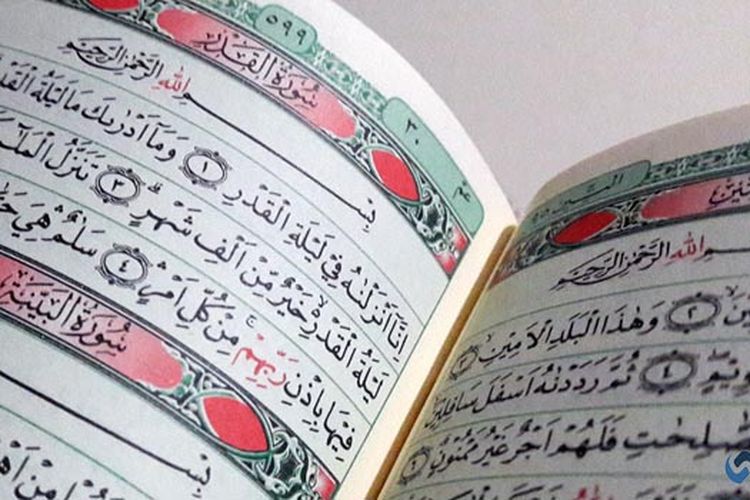 ٥٩٩
٣٠
عم
سُوْرَةُ الْقَدْرِ
بِسْمِ اللّٰهِ الرَّحْمٰنِ الرَّحِيْمِ
اِنَّآ اَنْزَلْنٰهُ فِيْ لَيْلَةِ الْقَدْرِ ۝١ وَمَآ اَدْرٰىكَ مَا لَيْلَةُ الْقَدْ
لَيْلَةُ الْقَدْرِ خَيْرٌ مِّنْ اَلْفِ شَهْرٍ ۝٣ تَنَزَّلُ الْمَلٰٓ
فِيْهَا بِاِذْنِ رَبِّهِمْ مِنْ كُلِّ اَمْرٍ ۝٤ سَلٰمٌ هِيَ
سُوْرَةُ الْبَيِّنَةِ
بِسْمِ
التين ٩٥
اللّٰهِ الرَّحْمٰنِ الرَّحِيْمِ
ۙ۝٢ وَهٰذَا الْبَلَدِ الْاَمِيْنِ ۝٣
۝٤ ثُمَّ رَدَدْنٰهُ اَسْفَلَ سَافِلِيْنَ
فَلَهُمْ اَجْرٌ غَيْرُ مَمْنُوْنٍ ۝٦